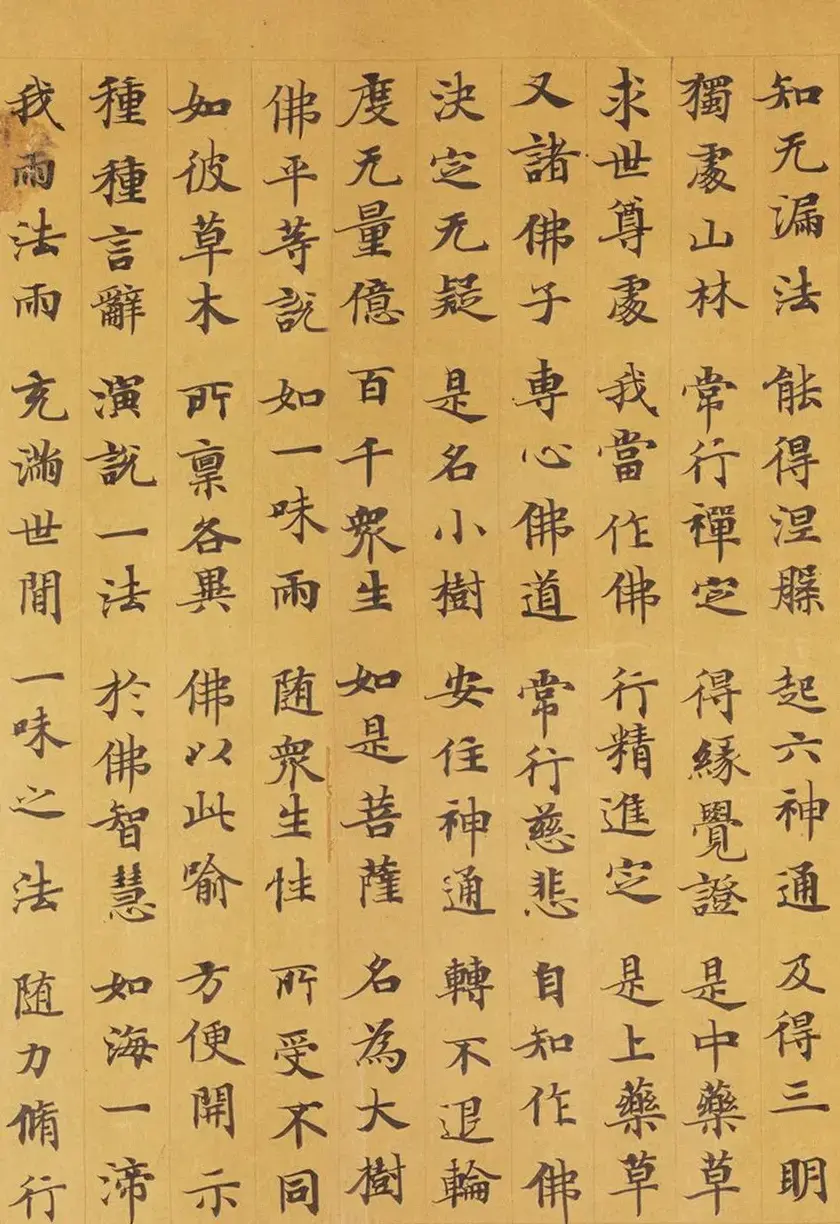 知无漏法 能得涅槃 起六神通 及得三明
獨處山林 常行禪定 得緣覺證 是中藥草
求世尊處 我當作佛 行精進定 是上藥草
又諸佛子 專心佛道 常行慈悲 自知作佛
決定无疑 是名小樹 安住神通 轉不退輪
度无量億 百千衆生 如是菩薩 名為大樹
佛平等說 如一味雨 随衆生性 所受不同
如彼草木 所稟各異 佛以此喻 方便開示
種種言辭 演說一法 於佛智慧 如海一渧
我雨法雨 充滿世間 一味之法 随力脩行